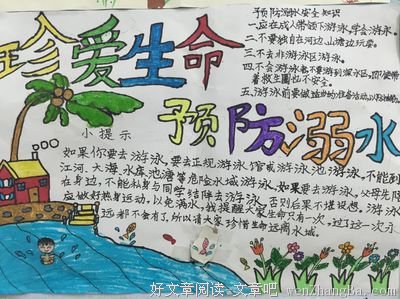 珍爱生命
预防溺水安全知识
一、应在成人带领下游泳,学会游泳。
二、不要独自在河边、山塘边玩耍。
三、不去非游泳区游泳。
四、不会游泳者,不要游到深水区,即使带
着救生圈也不安全。
五、游泳前要做适当的准备活动,以防抽筋。
预防溺水
小提示
如果你要去游泳,要去正规游泳馆或游泳池游泳,不能到
江河、大海、水库、池塘等危险水域游泳,如果要去游泳,父母先陪
在身边,不能私自与同学结伴去游泳。否则后果不堪设想。游泳
应做好热身运动,以免溺水。我提醒大家生命只有一次,过了这一次永
远都不会有了,所以请大家珍惜生命远离水域。
好文章阅读-文章吧 wenzhangba.com